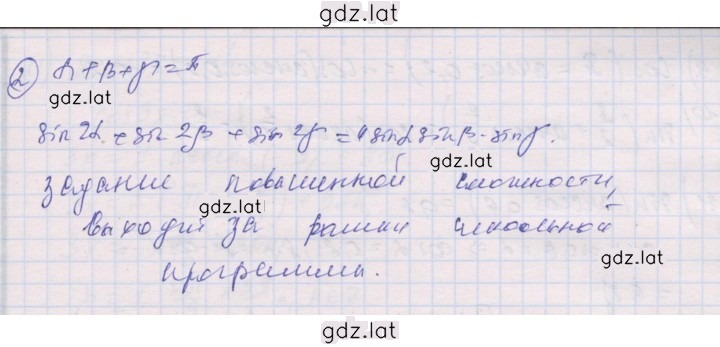 gdz.lat
② α+β+γ=π
gdz.lat
sin 2α + sin 2β + sin 2γ = 4 sinα sinβ · sinγ.
gdz.lat
задание повышенной сложности,
gdz.lat
выходит за рамки школьной
gdz.lat
программы.
gdz.lat